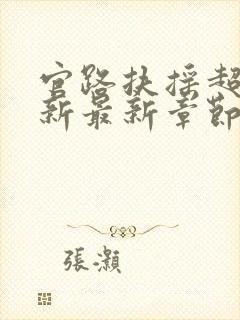 官路扶摇超
新最新章節
張灝